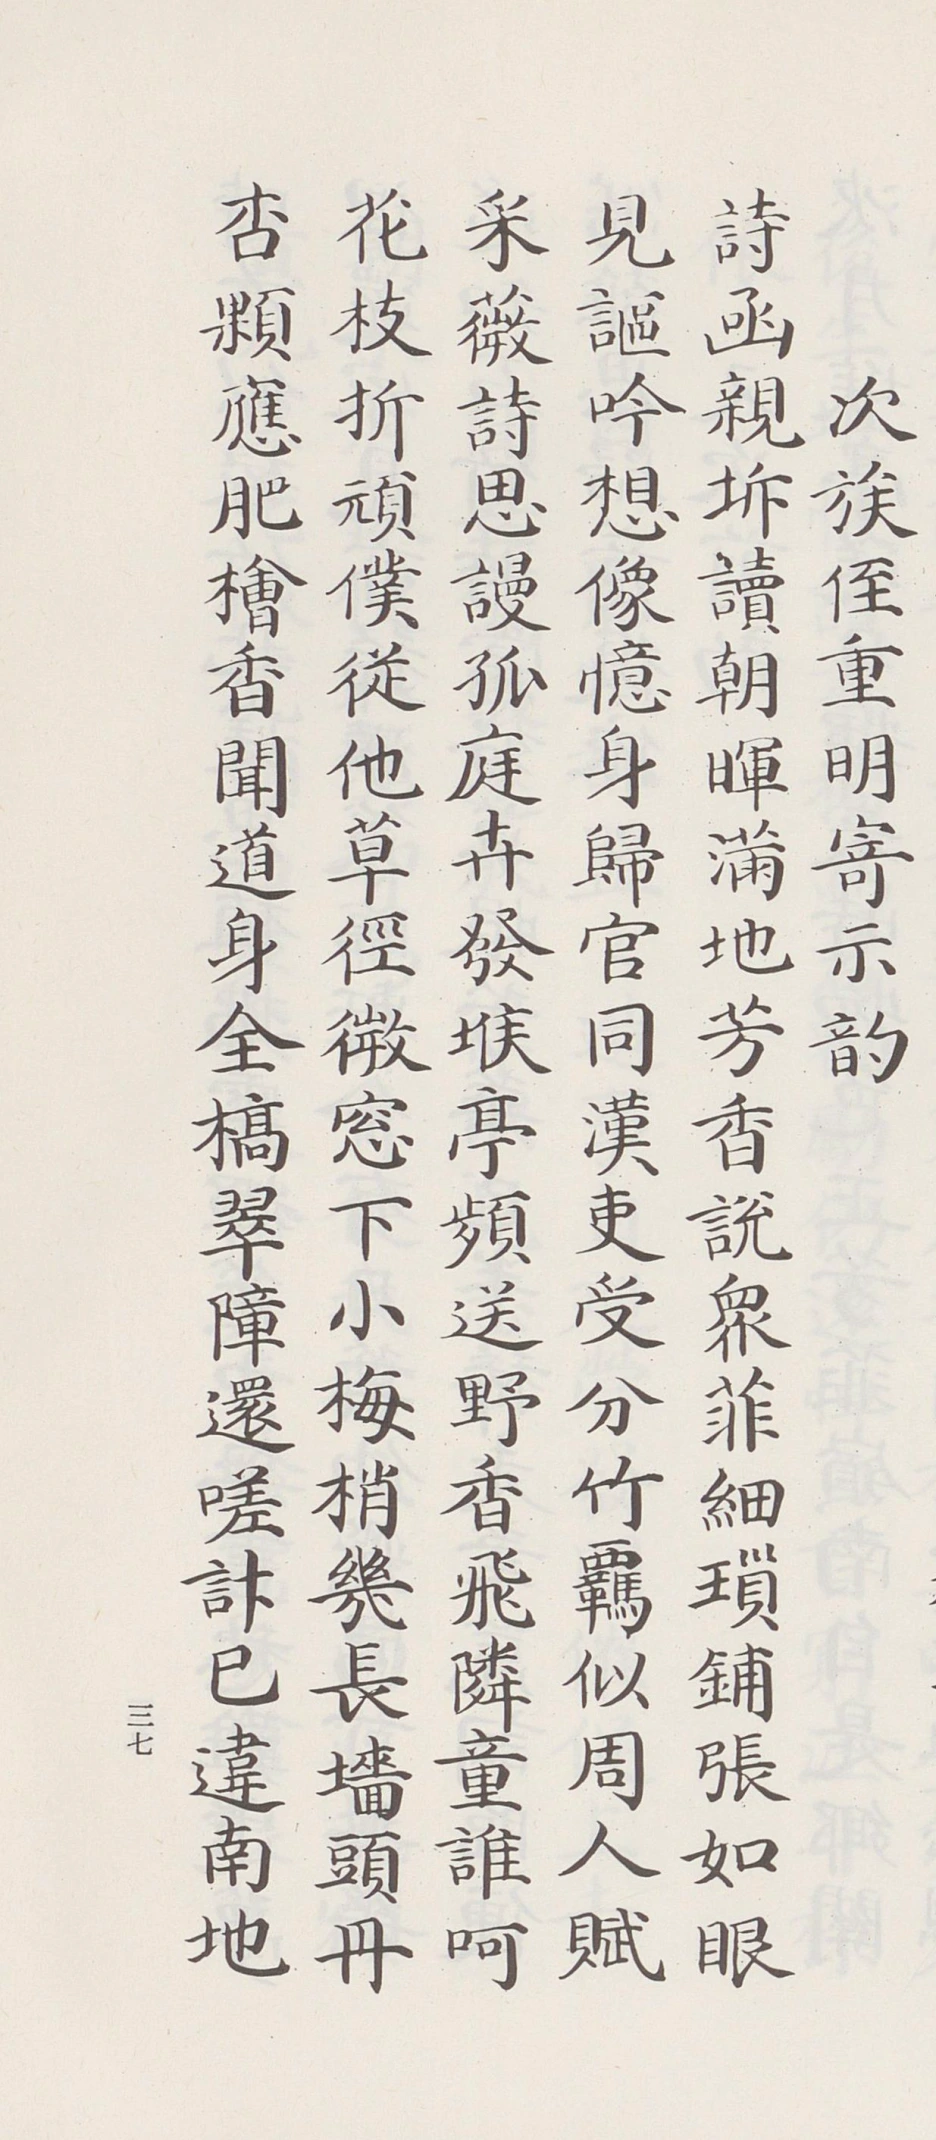 次族侄重明寄示韵
詩函親坼讀朝暉滿地芳香說衆菲細瑣鋪張如眼
見謳吟想像憶身歸官同漢吏受分竹羈似周人賦
采薇詩思謾孤庭卉發堠亭頻送野香飛隣童誰呵
花枝折頑僕從他草徑微窓下小梅梢幾長墻頭丹
杏顆應肥檜香聞道身全槁翠障還嗟計已違南地
三七